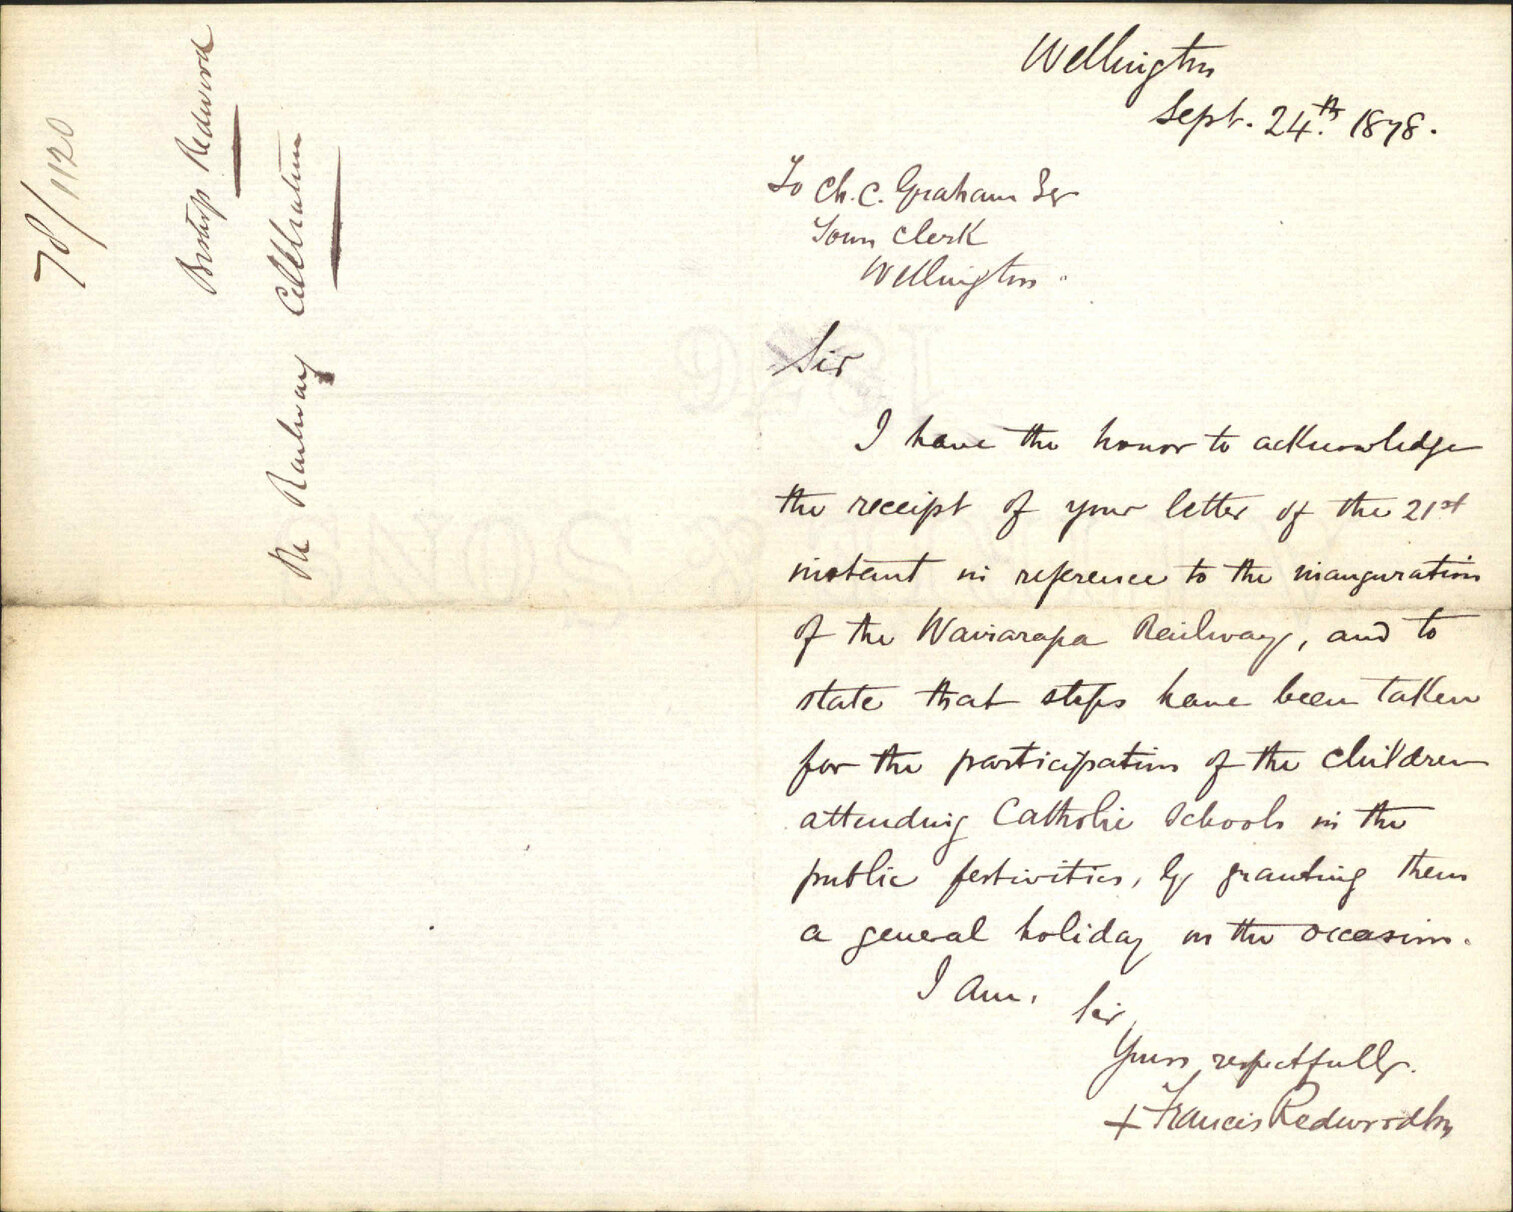 78/1120
Bishop Redwood
Re Railway Celebration
Wellington
Sept. 24th. 1878.
To Ch. C. Graham Esq
Town Clerk
Wellington.
Sir
I have the honor to acknowledge
the receipt of your letter of the 21st
instant in reference to the inauguration
of the Wairarapa Railway, and to
state that steps have been taken
for the participation of the children
attending Catholic Schools in the
public festivities, by granting them
a general holiday on the occasion.
I am,
Sir,
Yours respectfully.
+ Francis Redwood